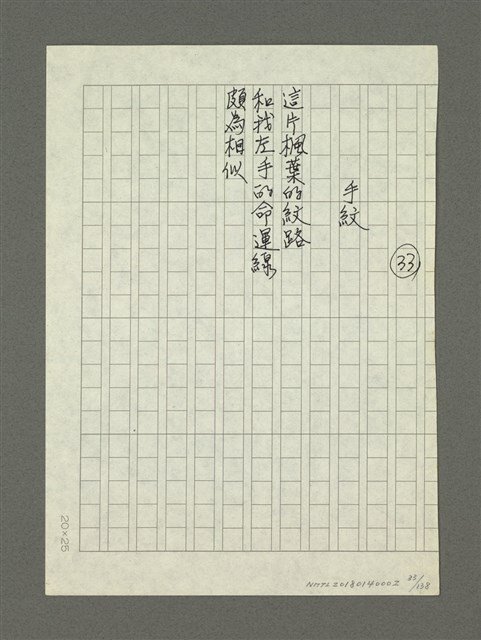 33
手紋
這片楓葉的紋路
和我左手的命運線
頗為相似
20×25
NMTL20180140002
33/138